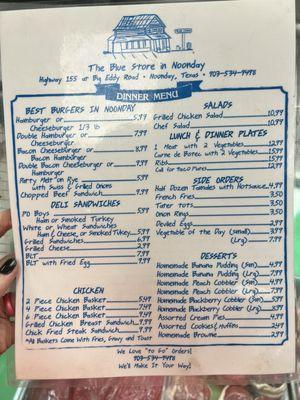 The Blue Store in Noonday
Highway 155 at Big Eddy Road • Noonday, Texas • 903-534-9498
DINNER MENU
BEST BURGERS IN NOONDAY
Hamburger or 5.99
Cheeseburger 1/3 lb
Double Hamburger or 7.99
Cheeseburger
Bacon Cheeseburger or 8.99
Bacon Hamburger
Double Bacon Cheeseburger or 9.99
Hamburger
Patty Melt on Rye 5.99
with Swiss & Grilled Onions
Chopped Beef Sandwich 9.99
DELI SANDWICHES
PO Boys 5.99
Ham or Smoked Turkey
White or Wheat Sandwiches
Ham & Cheese, or Smoked Tukey 5.99
Grilled Sandwiches 6.99
Grilled Cheese 2.99
BLT 5.99
BLT with Fried Egg 9.99
CHICKEN
2 Piece Chicken Basket 5.49
4 Piece Chicken Basket 7.99
6 Piece Chicken Basket 9.49
Grilled Chicken Breast Sandwich 9.99
Chick Fried Steak Sandwich 9.99
*All Baskets Come With Fries, Gravy and Toast
SALADS
Grilled Chicken Salad 10.99
Chef Salad 10.99
LUNCH & DINNER PLATES
1 Meat with 2 Vegetables 12.99
Carne de Botec with 2 Vegetables 15.99
Ribs 15.99
Call for Taco Plates 12.99
SIDE ORDERS
Half Dozen Tamales with Hotsauce 4.99
French Fries 3.50
Tater tots 3.50
Onion Rings 3.50
Deviled Eggs 2.99
Vegetable of the Day (small) 3.99
(Lrg) 7.99
DESSERTS
Homemade Banana Pudding (Sm) 4.99
Homemade Banana Pudding (Lrg) 7.99
Homemade Peach Cobbler (Sm) 4.99
Homemade Peach Cobbler (Lrg) 7.99
Homemade Blackberry Cobbler (Sm) 5.99
Homemade Blackberry Cobbler (Lrg) 8.99
Assorted Cream Pies 4.99
Assorted Cookies/Muffins 2.49
Homemade Brownie 2.99
We Love "To Go" Orders!
903-534-9498
We'll Make It Your Way!